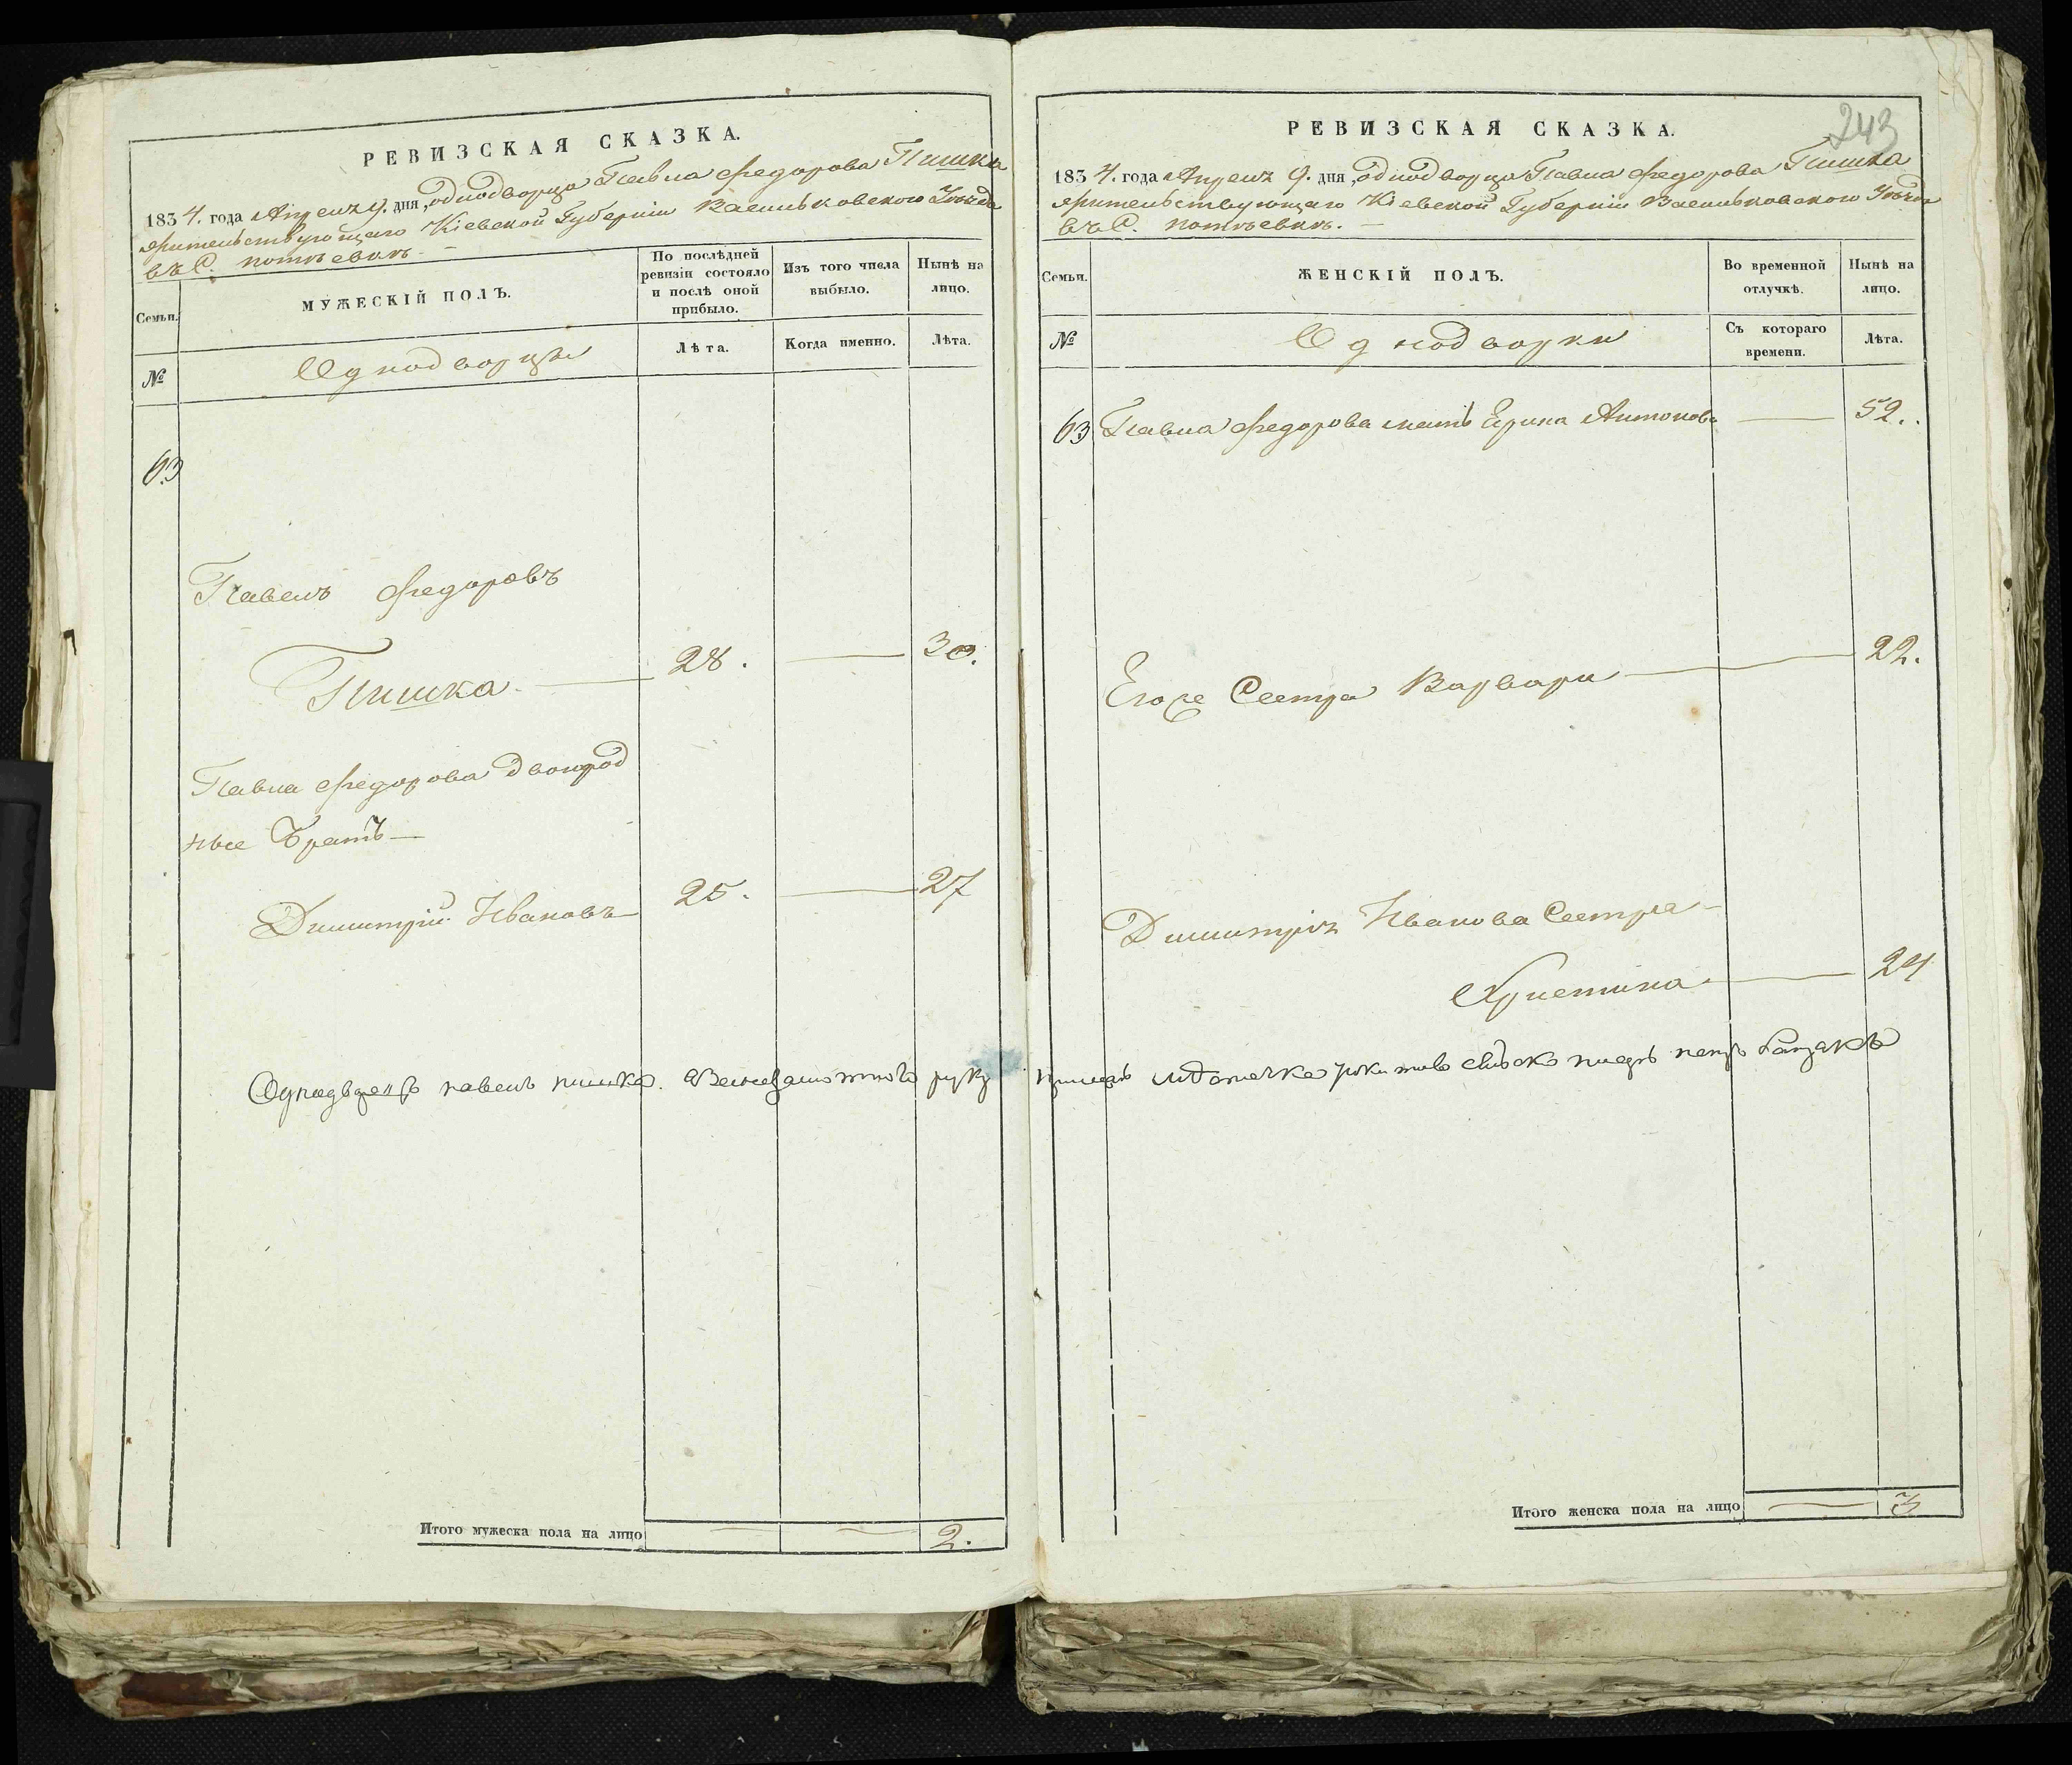 РЕВИЗСКАЯ СКАЗКА.
1834. года Апреля 9. дня, однодворца Павла Федорова Пишка
жительствующаго Кіевской Губерніи Васильковского Уѣзда
въ С. потѣевкѣ. —
Семьи.
МУЖЕСКІЙ ПОЛЪ.
По послѣдней ревизіи состояло и послѣ оной прибыло.
Изъ того числа выбыло.
Нынѣ на лицо.
№
Однодворцы
Лѣта.
Когда именно.
Лѣта.
63
Павелъ Федоровъ
Пишка — 28. — 30.
Павла Федорова двоюрод
ные Братъ —
Димитрій Ивановъ — 25. — 27
Однодворецъ павелъ пишка. руку
Итого мужеска пола на лицо — — 2.
243
РЕВИЗСКАЯ СКАЗКА.
1834. года Апреля 9. дня, однодворца Павла Федорова Пишка
жительствующаго Кіевской Губерніи Васильковского Уѣзда
въ С. потѣевкѣ. —
Семьи.
ЖЕНСКІЙ ПОЛЪ.
Во временной отлучкѣ.
Нынѣ на лицо.
№
Однодворки
Съ котораго времени.
Лѣта.
63 Павла Федорова мать Ерина Антонова — 52.
Егоже Сестра Варвара — 22.
Димитрія Иванова Сестра —
Христина — 24
местечка
Итого женска пола на лицо — 3